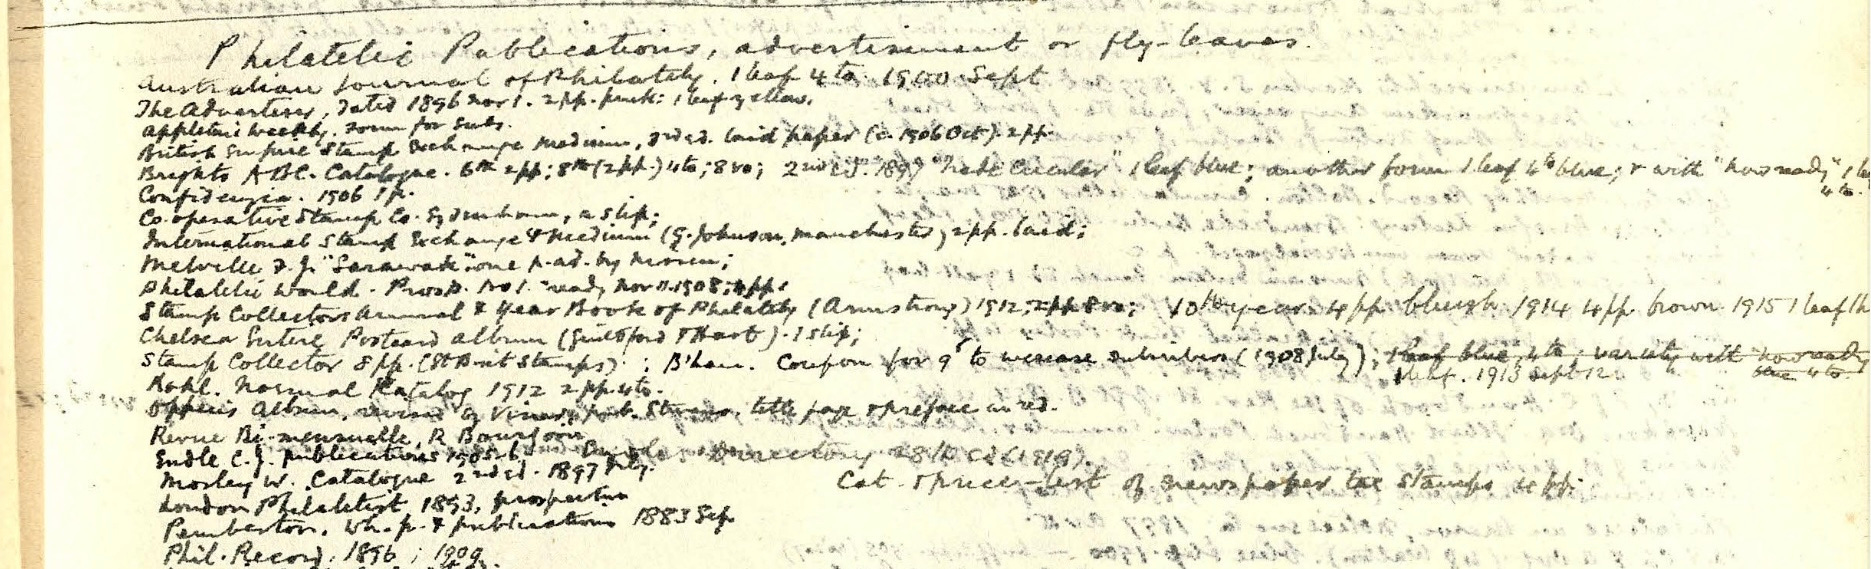 Philatelic Publications, advertisement or fly-leaves.
Australian Journal of Philately. 1 leaf 4to. 1900 Sept
The Advertiser, dated 1896 Nov 1. 2 pp. pink: 1 leaf yellow.
Weekly. Form for subs.
British Empire Stamp Exchange Medium, 3rd ed. laid paper (c. 1906 Oct). 2 pp.
Brights ABC. Catalogue. 6th 2 pp; 8th (2 pp.) 4to; 8vo; 2nd ed. 1897 "Trade Circular" 1 leaf blue; another form 1 leaf 4to blue; & with "now ready" 1
4to.
1906 1 p.
Co-operative Stamp Co. Sydenham, a slip;
International Stamp Exchange & Medium (G. Johnson, Manchester) 2 pp. laid;
Melville F.J. "Sarawak" one p. ad. by
Philatelic World. Prosp. No 1. ready Nov 11. 1908; 4 pp.
Stamp Collectors Annual & Year Book of Philately (Armstrong) 1912; 2 pp. 8vo; 10th year. 4 pp bluish 1914 4 pp. brown 1915 1 leaf
Chelsea Postcard album (Guildford & Hart). 1 slip;
Stamp Collector 8 pp. (St Brit Stamps); B'ham. Coupon for 9d to increase subscribers (1908 July); 1 leaf blue, 4to, variety with "now ready"
blue 4to.
1 leaf. 1913 Sept 12
Kohl. Normal Katalog 1912 2 pp. 4to.
Oppen's Album, revised by Viner, pub. Stevens. title page & preface in red.
Revue Bi-mensuelle, R Bourgoin
Endle C.J. publications 1905.6 Directory 28th ed (1919).
Morley W. Catalogue 2nd ed. 1897 July. Cat. & price-list of newspaper tax stamps 4 pp.
London Philatelist 1893, prospectus
Pemberton. Wh. p. & publications 1883 Sep
Phil. Record. 1896; 1909.